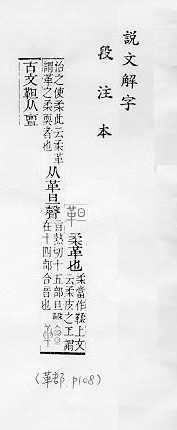 說文解字
段注本
柔革也
柔當作鞣上文
云柔皮之工謂
治之使柔此云柔革
謂革之柔耎者也
从革旦聲
旨熱切十五部旦聲
在十四部合音也
古文靼从亶
(革部 P108)